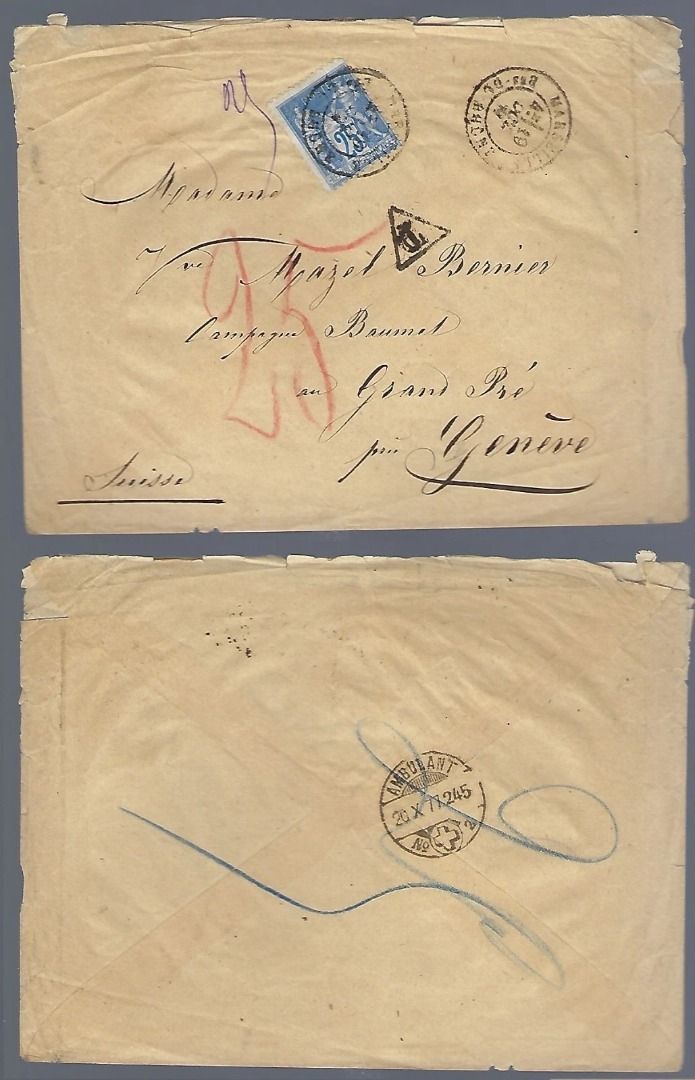 25
MARSEILLE
BES-DU-RHONE
19
OCT
T
Madame
Vve Mazel Bernier
Campagne Baumet
au Grand Pré
près Genève
Suisse
25
AMBULANT
20 X 77 245
No 2